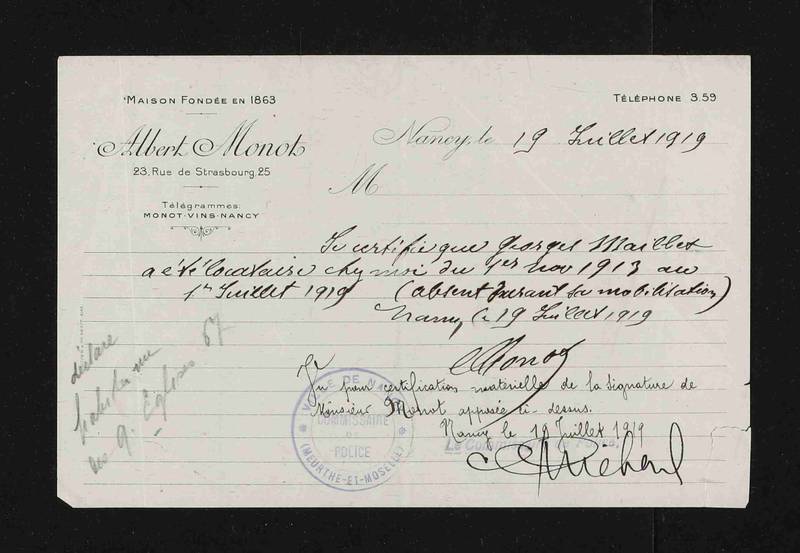 MAISON FONDÉE EN 1863
TÉLÉPHONE 3.59
Albert Monot
23, Rue de Strasbourg, 25
Télégrammes:
MONOT-VINS-NANCY
Nancy, le 19 Juillet 1919
M
Je certifie que Georges Maillet
a été locataire chez moi du 1er nov 1913 au
1er Juillet 1919 (absent durant sa mobilisation)
Nancy le 19 Juillet 1919
Monot
déclare
habiter rue
des 4 Eglises 67
Vu pour certification matérielle de la signature de
Monsieur Monot apposée ci-dessus.
Nancy le 19 Juillet 1919
VILLE DE NANCY
COMMISSAIRE
DE
POLICE
(MEURTHE-ET-MOSELLE)